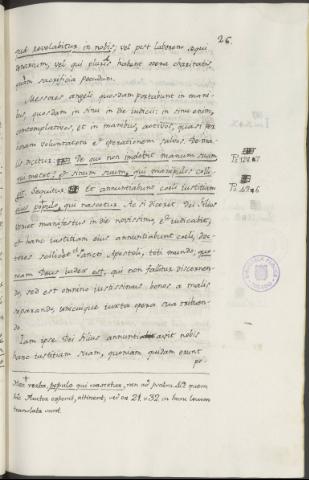 26.
sed revelabitur in nobis, vel post laborem aqui
vel qui pluris habent opera charitatis
quam sacrificia pecudum.
Messores angeli quosdam portabunt in mani-
bus, quosdam in sinu in die iudicii: in sinu enim,
contemplativos, et in manibus, activos, quasi per
bonam voluntatem et operationem salvos. De ma-
lis dicitur: De quo non implebit manum suam
qui metet; et sinum suum, qui manipulos colli-
get. Sequitur: Et annuntiabunt coeli iustitiam
eius populo, qui nascetur. Ac si dicerit: Dei filius
veniet manifestus in die novissimo, et iudicabit,
et hanc iustitiam eius annuntiabunt coeli, doc-
tores scilicet et Sancti Apostoli, toti mundo, quo-
niam Deus iudex est, qui non fallitur discernen-
do, sed est omnino iustissimus bonos a malis
separando, unicuique iuxta opera sua tribuen-
do.
Iam ipse Dei filius annuntiavit nobis
hanc iustitiam suam, quoniam quidam erunt
po-
Ps. 128.
Ps. 49.
Haec verba, populo qui nascetur, non ad psalm. quem
hic Auctor exponit, attinent, sed ex 21. v. 32 in hunc locum
translata sunt.